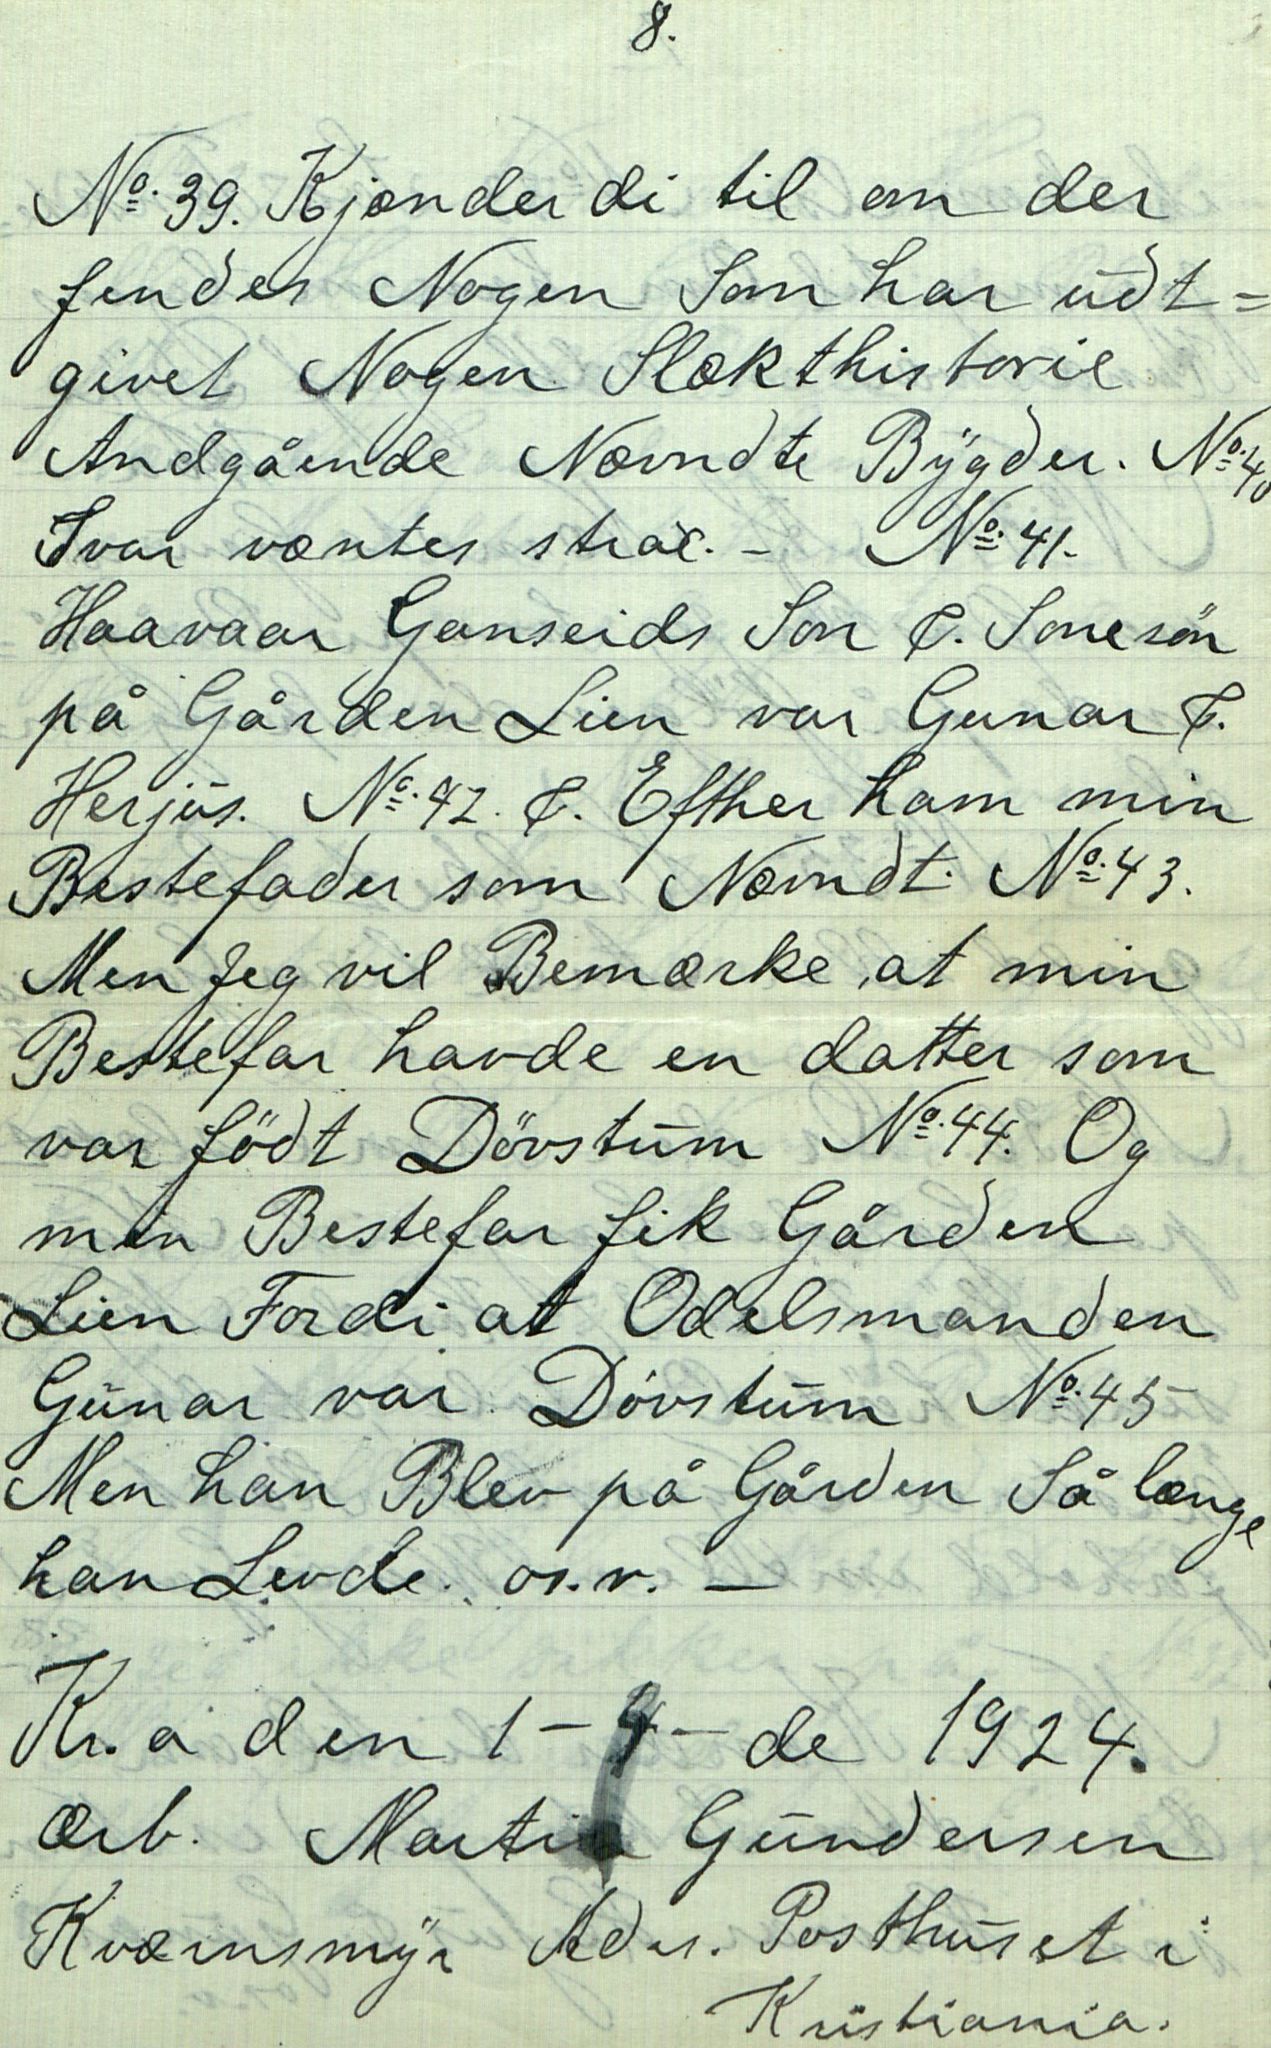 8.
No. 39. Kjænder di til om der
findes Nogen Som har udt=
givet Nogen Slækthistorie
Andgående Nævndte Bÿgder. No. 40
Svar væntes strax. – No. 41.
Haavaar Ganseids Søn &. Sønesön
på Gården Lien var Gunar &.
Herjus. No. 42. &. Efther ham min
Bestefader som Nævndt. No. 43.
Men Jeg vil Bemærke, at min
Bestefar havde en datter som
var födt Dövstum No. 44. Og
min Bestefar fik Gården
Lien Fordi at Odelsmanden
Gunar var Dövstum No. 45
Men han Blev på Gården Så længe
han Levde. os.v. –
Kr. a den 1 – 4 – de 1924.
Ærb. Martin Gundersen
Kværnsmÿr Adr. Posthuset i
Kristiania.